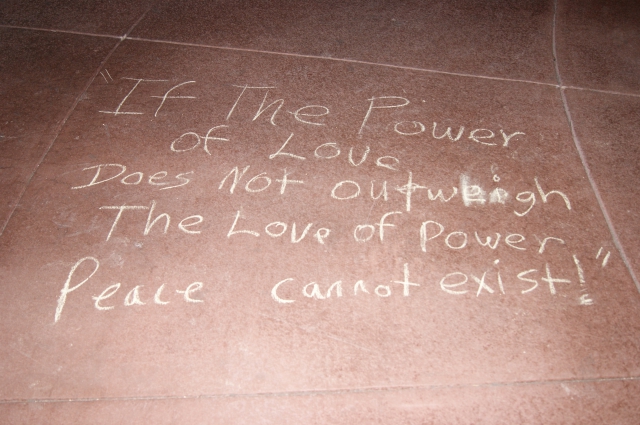 "If The Power
of Love
Does Not outweigh
The Love of Power
Peace cannot exist!"